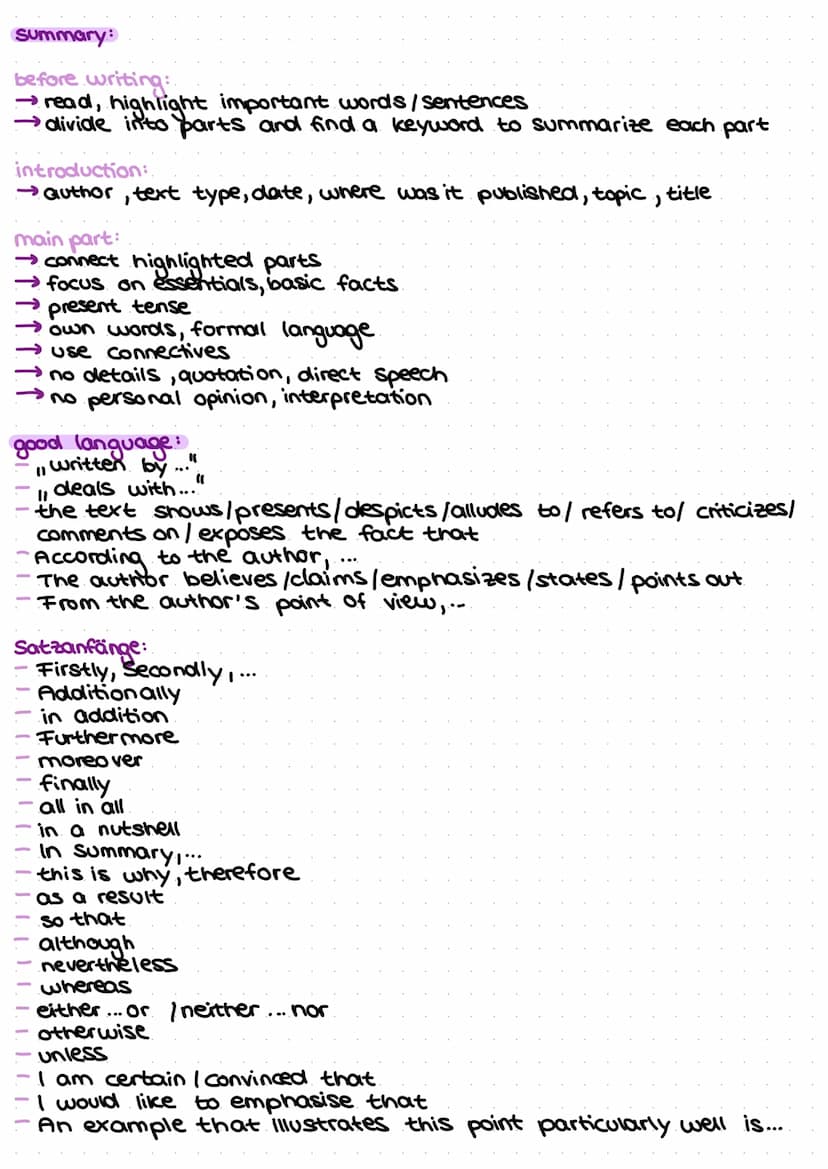 summary:
before writing:
→ read, highlight important words/sentences
→ divide into parts and find a keyword to summarize each part
introduction:
→ author, text type, date, where was it published, topic, title
main part:
→ connect highlighted parts
→ focus on essentials, basic facts
→ present tense
→ own words, formal language
→ use connectives
→ no details, quotation, direct speech
→ no personal opinion, interpretation
good language:
- „written by ..."
- „deals with..."
- the text shows/presents/despicts/alludes to/ refers to/ criticizes/
comments on/ exposes the fact that
- According to the author, ...
- The author believes/claims/emphasizes/states/points out
- From the author's point of view,...
Satzanfänge:
- Firstly, Secondly, ...
- Additionally
- in addition
- Furthermore
- moreover
- finally
- all in all
- in a nutshell
- In Summary,...
- this is why, therefore
- as a result
- so that
- although
- nevertheless
- whereas
- either ... or / neither ... nor
- otherwise
- unless
- I am certain / convinced that
- I would like to emphasise that
- An example that Illustrates this point particularly well is...